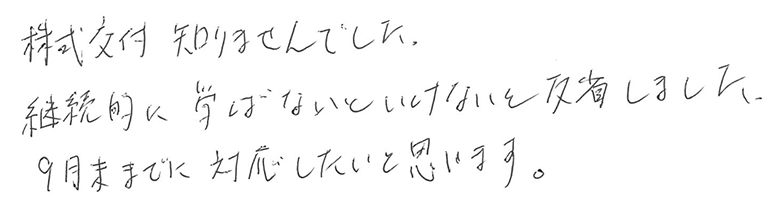 株式交付 知りませんでした.
継続的に 学ばないといけないと 反省しました、
9月末までに 対応したいと思います。